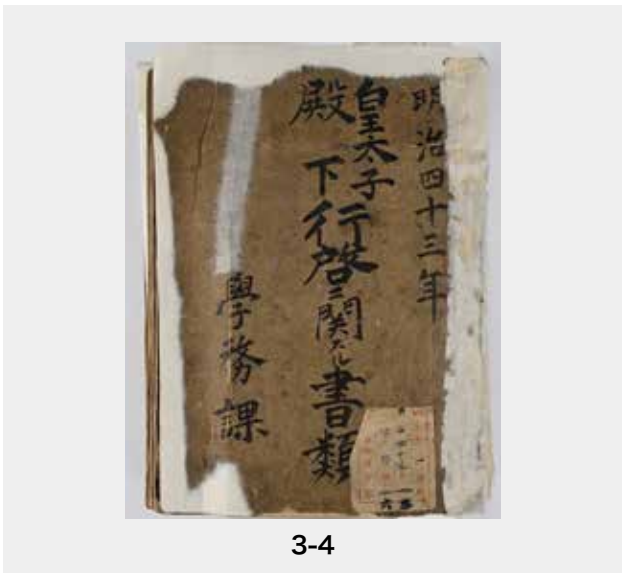 明治四十三年
皇太子
殿下行啓ニ関スル書類
學務課
3-4